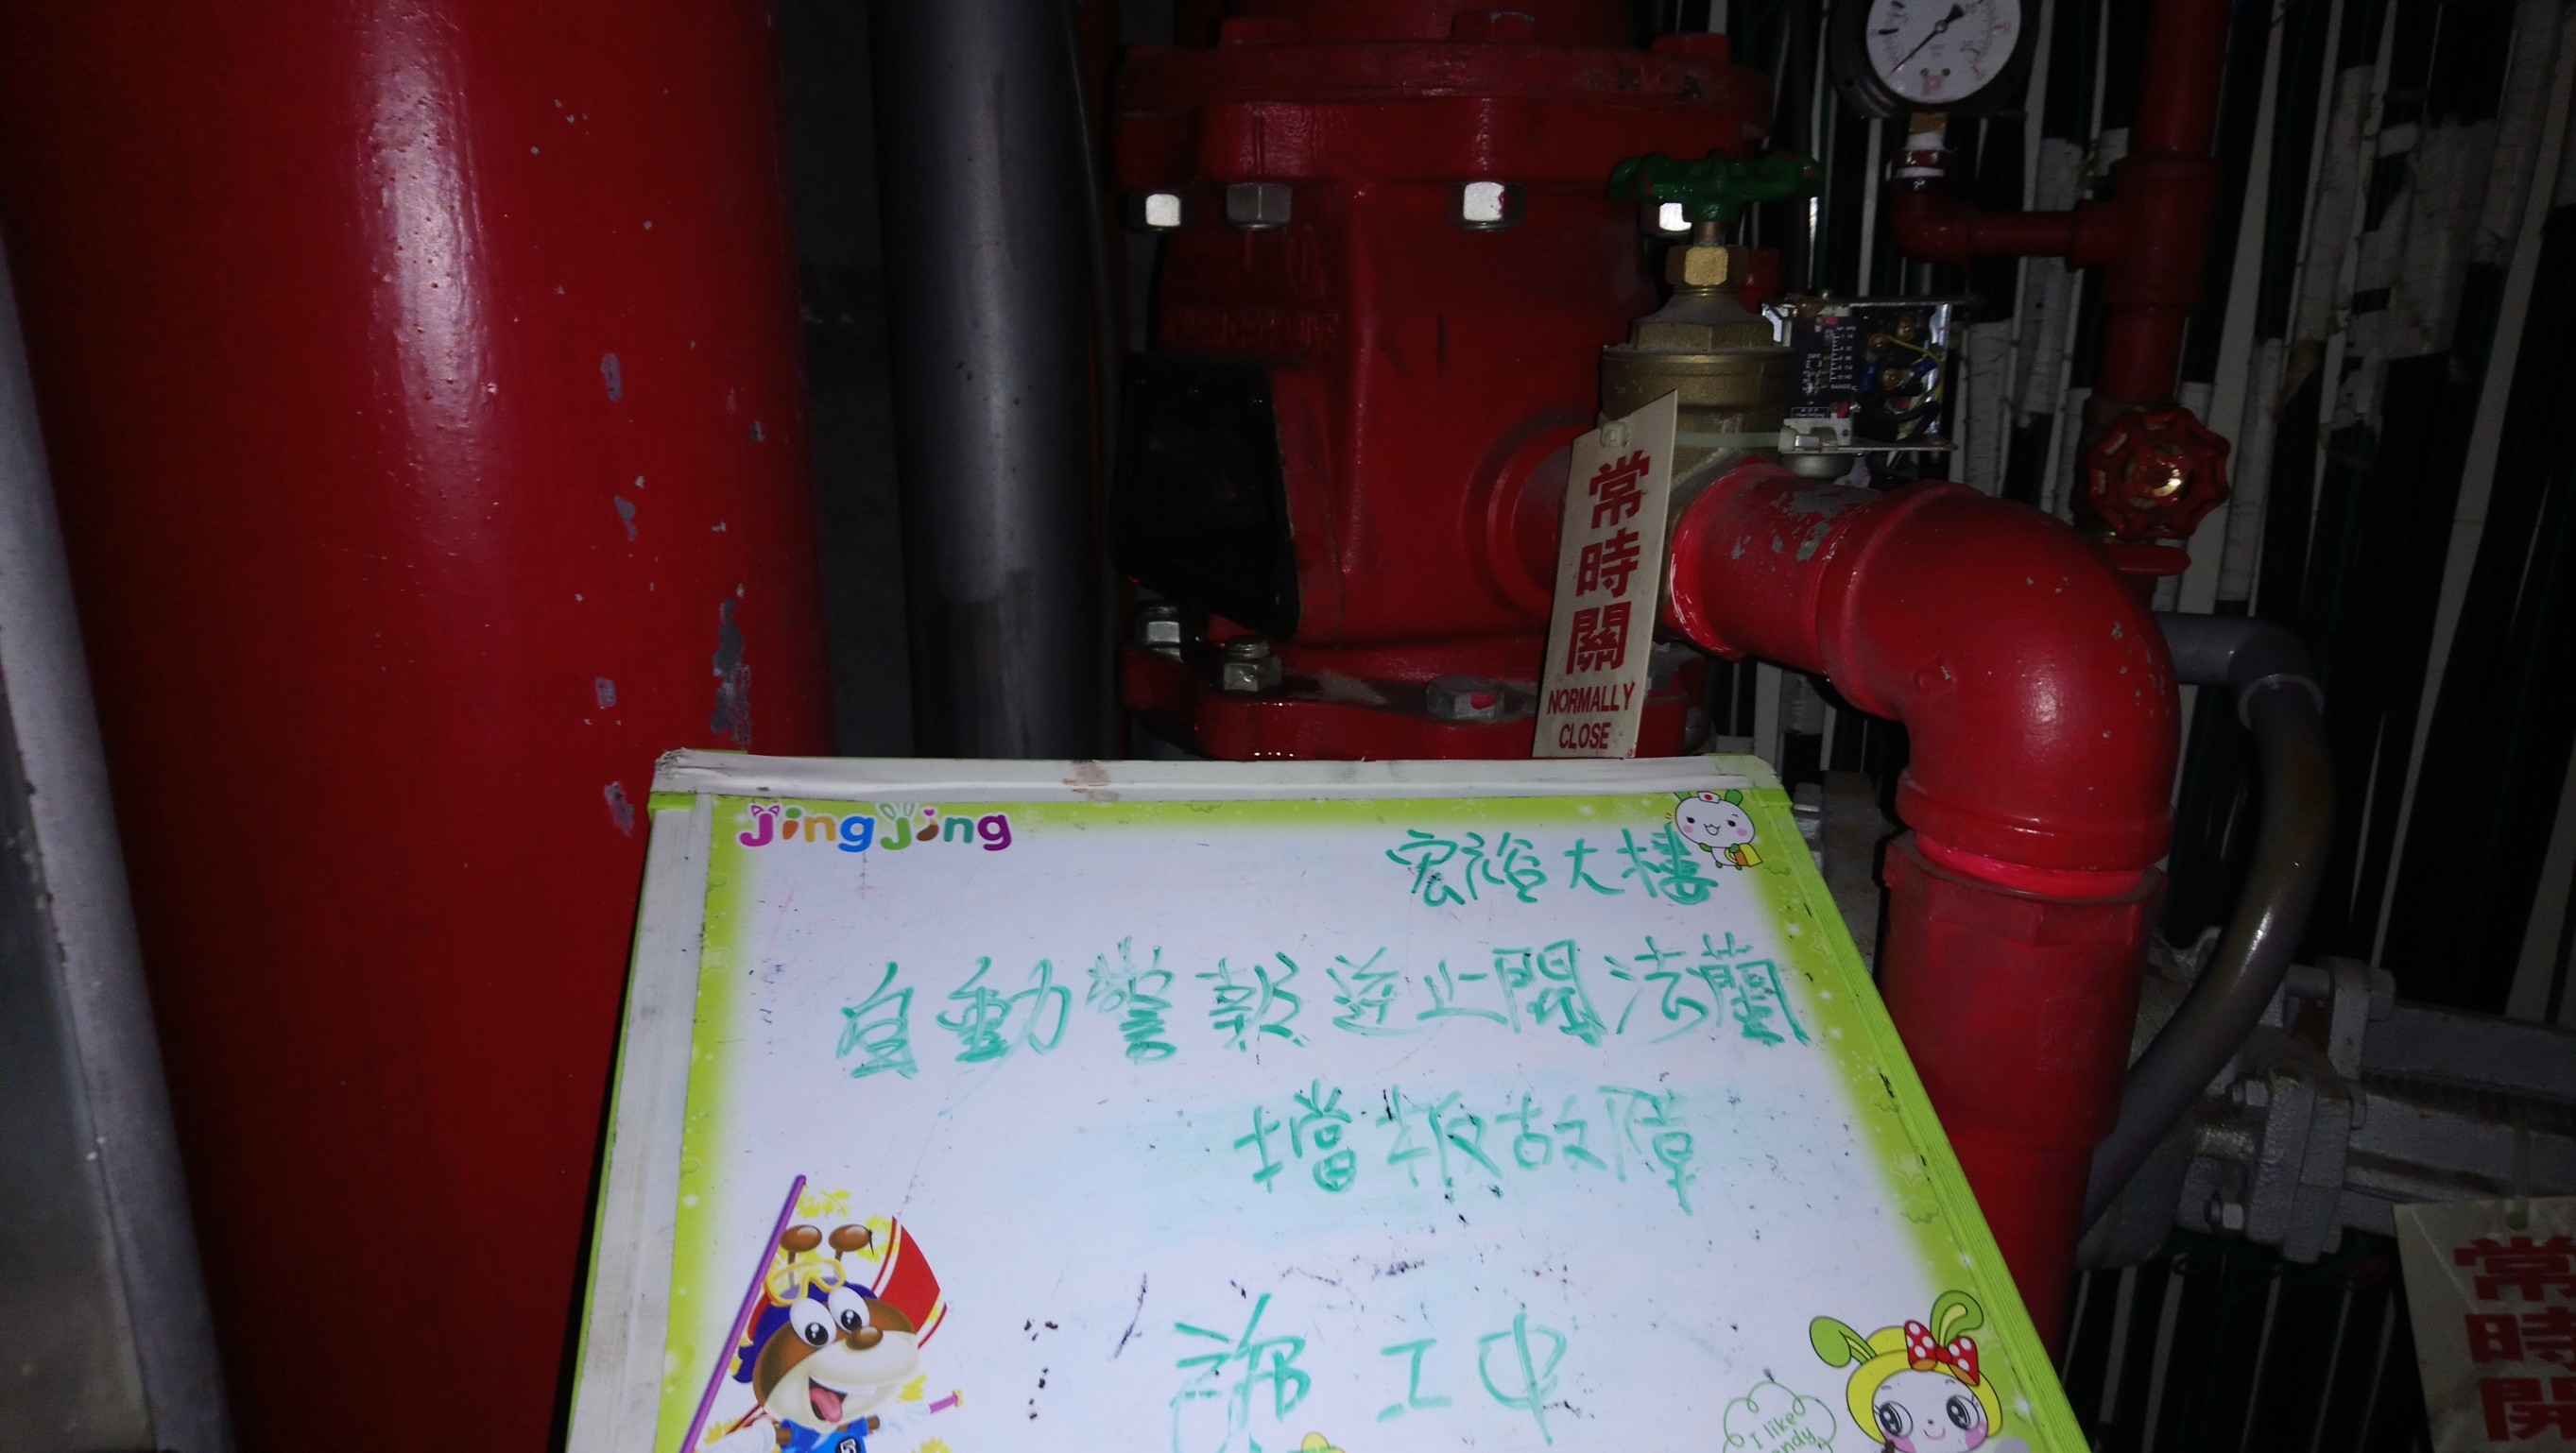 常時關
NORMALLY
CLOSE
jingjing
宏裕大樓
自動警報逆止閥法蘭
擋板故障
施工中
I like
常時開